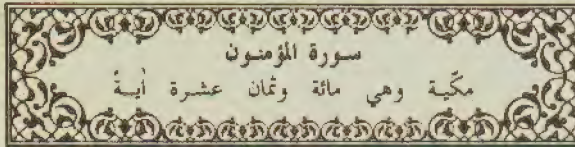 سورة المؤمنون
مكّية وهي مائة وثمان عشرة أيـةً